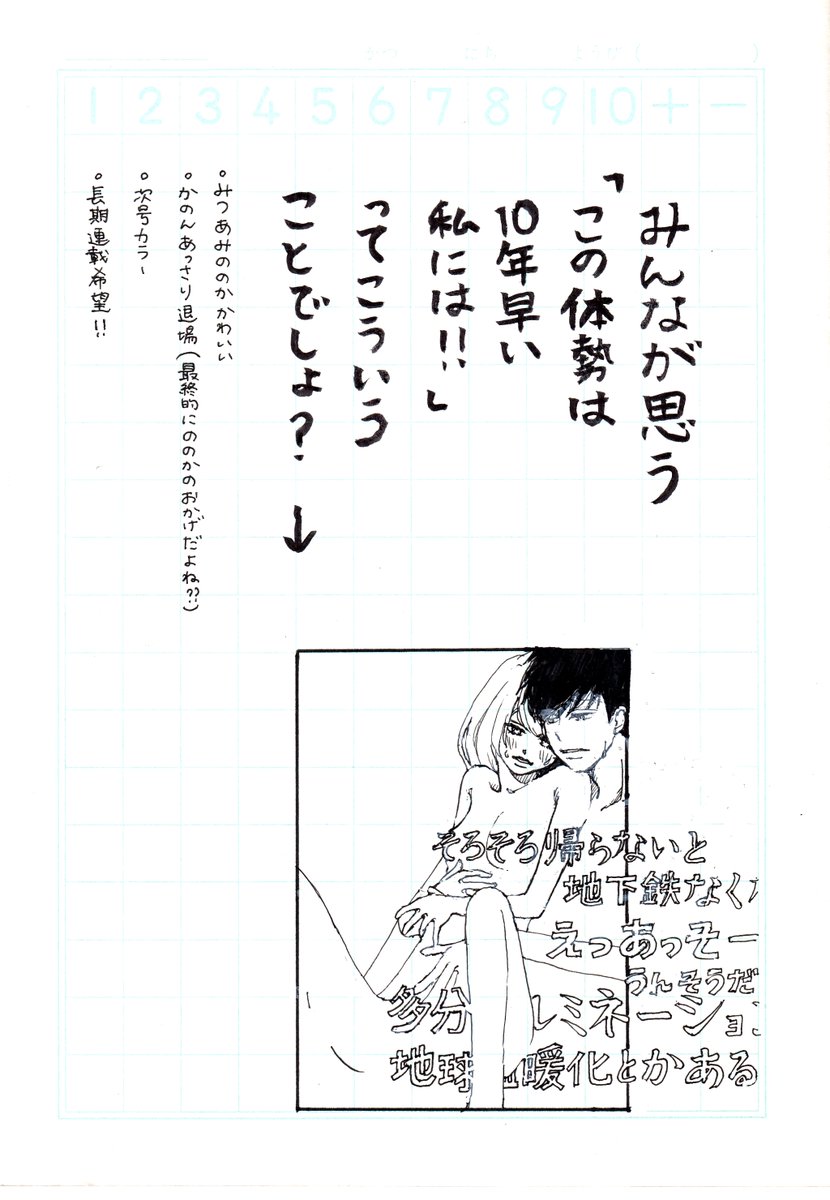 1 2 3 4 5 6 7 8 9 10 + −
みんなが思う
「この体勢は
10年早い
私には!!」
ってこういう
ことでしょ？ ↓
。みつあみののかかわいい
。かのんあっさり退場(最終的にののかのおかげだよね??)
。次号カラー
。長期連載希望!!
そろそろ帰らないと
地下鉄なく
えっあっそー
うんそうだ
多分 レミネーショ
地球 暖化とかある